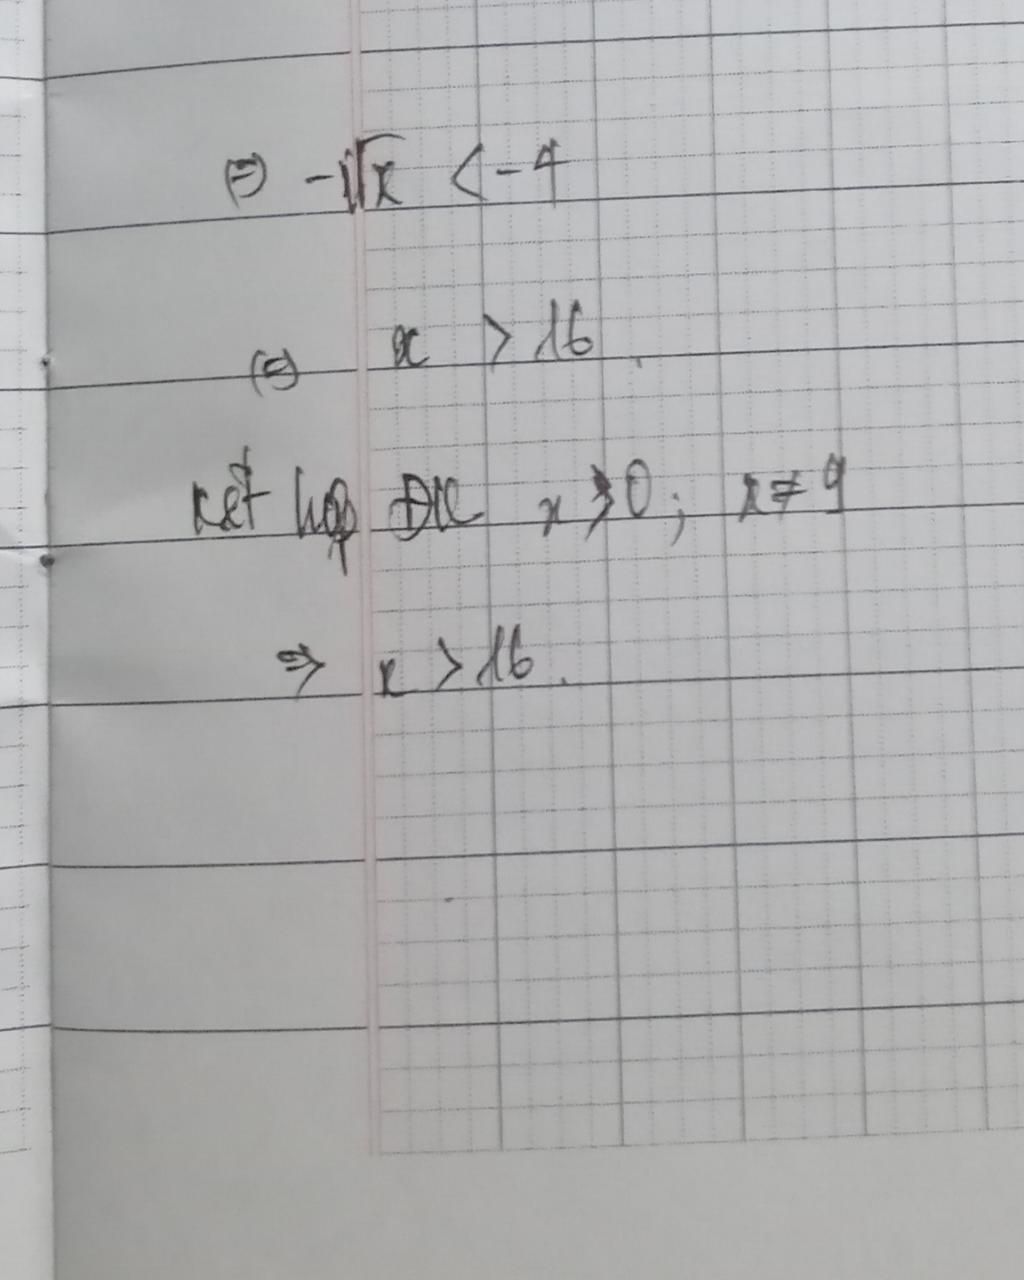 ⇔ -√x < -4
⇔ x > 16
Kết hợp ĐK x ≥ 0 ; x ≠ 9
⇒ x > 16.